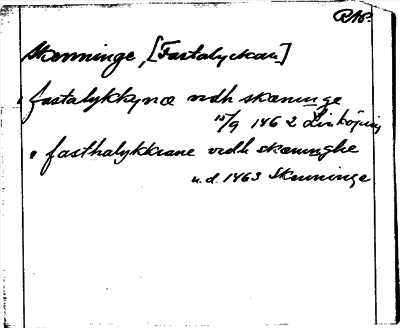 RAp.
Skenninge, [Fastalyckan]
fastalykkynæ vidh skæninge
15/9 1462 Linköping
fasthalykkiane vidh skæninghe
u.d. 1463 Skenninge